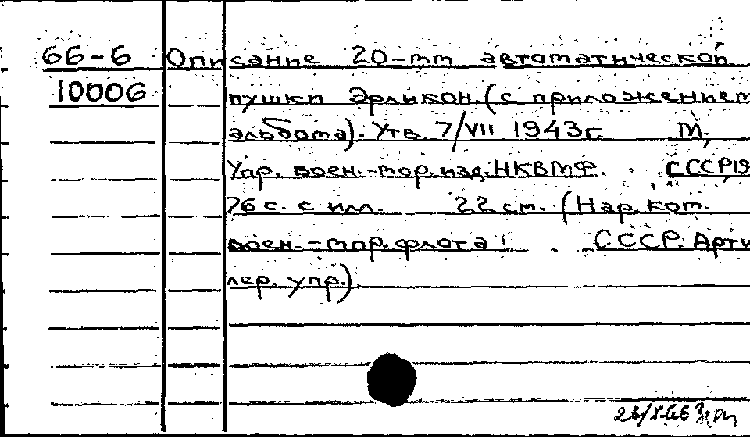 66-6 Описание 20-mm автоматической
10006 пушки Эрликон (с приложением
альбома). Утв. 7/VII 1943г. М,
Упр. воен.-мор.изд.НКВМФ. СССР,19
76 с. с илл. 22 см. (Нар.ком.
воен.-мор.флота СССР. Арти
лер. упр.)